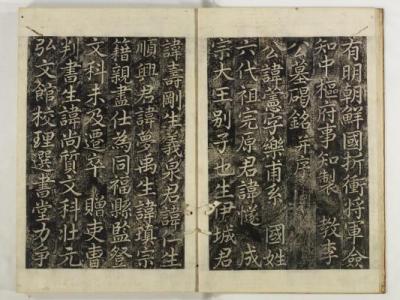 有明朝鮮國折衝將軍僉
知中樞府事知製 教李
公墓碣銘 幷序
公諱 字樂甫系 國姓
六代祖完原君諱㥞 成
宗大王別子也生伊城君
諱壽剛生義泉君諱仁生
順興君諱夢禹生諱瑱宗
籍親盡仕為同福縣監登
文科未及遷卒 贈吏曹
判書生諱尚質文科壯元
弘文館校理選書堂力爭